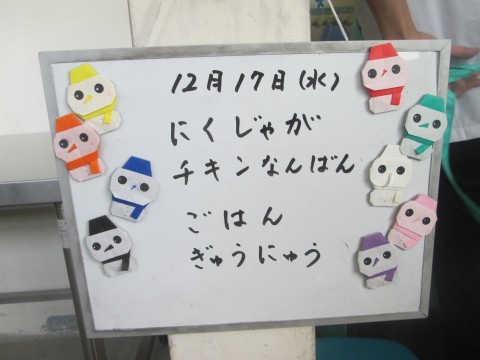 12月17日(水)
にくじゃが
チキンなんばん
ごはん
ぎゅうにゅう